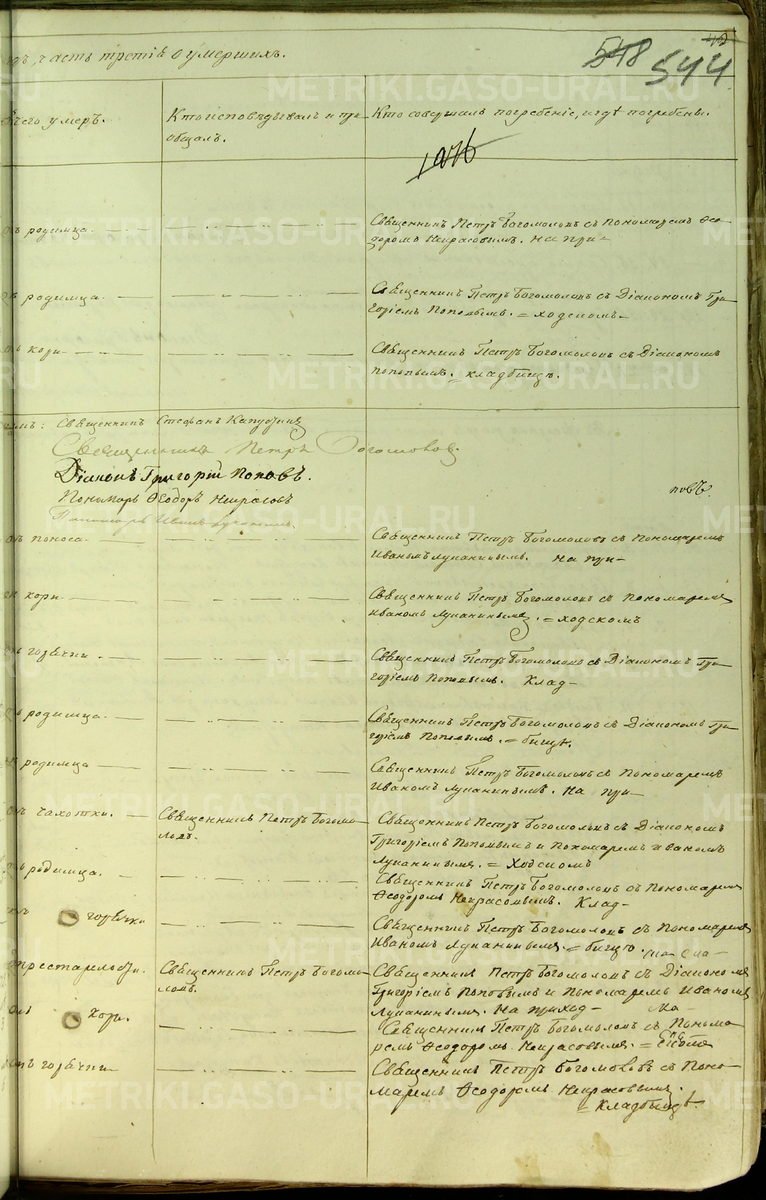 часть третія о умершихъ.
548
42
544
чего умеръ.
Кто исповѣдывалъ и при-
общалъ.
Кто совершалъ погребеніе, и гдѣ погребены.
родимца.
Священникъ Петръ Богомоловъ съ Пономаремъ Ѳео-
доромъ Некрасовымъ. На при-
родимца.
Священникъ Петръ Богомоловъ съ Діакономъ Гри-
горіемъ Поповымъ. = ходскомъ
кори
Священникъ Петръ Богомоловъ съ Діакономъ
Поповымъ. = кладбищѣ.
Священникъ Стефанъ
Священникъ Петръ Богомоловъ.
Діаконъ Григорій Поповъ.
Пономарь Ѳеодоръ Некрасовъ
Пономарь Иванъ
повъ.
поноса.
Священникъ Петръ Богомоловъ съ Пономаремъ
Иваномъ Лупанинымъ. На при-
кори
Священникъ Петръ Богомоловъ съ Пономаремъ
Иваномъ Лупанинымъ. = ходскомъ
горячки.
Священникъ Петръ Богомоловъ съ Діакономъ Гри-
горіемъ Поповымъ. Клад-
родимца.
Священникъ Петръ Богомоловъ съ Діакономъ Гри-
горіемъ Поповымъ. = бищѣ.
родимца
Священникъ Петръ Богомоловъ съ Пономаремъ
Иваномъ Лупанинымъ. На при-
чахотки.
Священникъ Петръ Богомо-
ловъ.
Священникъ Петръ Богомоловъ съ Діакономъ
Григоріемъ Поповымъ и Пономаремъ Иваномъ
Лупанинымъ. = Ходскомъ
родимца.
Священникъ Петръ Богомоловъ съ Пономаремъ
Ѳеодоромъ Некрасовымъ. Клад-
горячки
Священникъ Петръ Богомоловъ съ Пономаремъ
Иваномъ Лупанинымъ. = бищѣ.
престарелости.
Священникъ Петръ Богомо-
ловъ.
Священникъ Петръ Богомоловъ съ Діакономъ
Григоріемъ Поповымъ и Пономаремъ Иваномъ
Лупанинымъ. На приход-
кори.
Священникъ Петръ Богомоловъ съ Понома-
ремъ Ѳеодоромъ Некрасовымъ. =
горячки
Священникъ Петръ Богомоловъ съ Поно-
маремъ Ѳеодоромъ Некрасовымъ.
= кладбищѣ.
METRIKI.GASO-URAL.RU